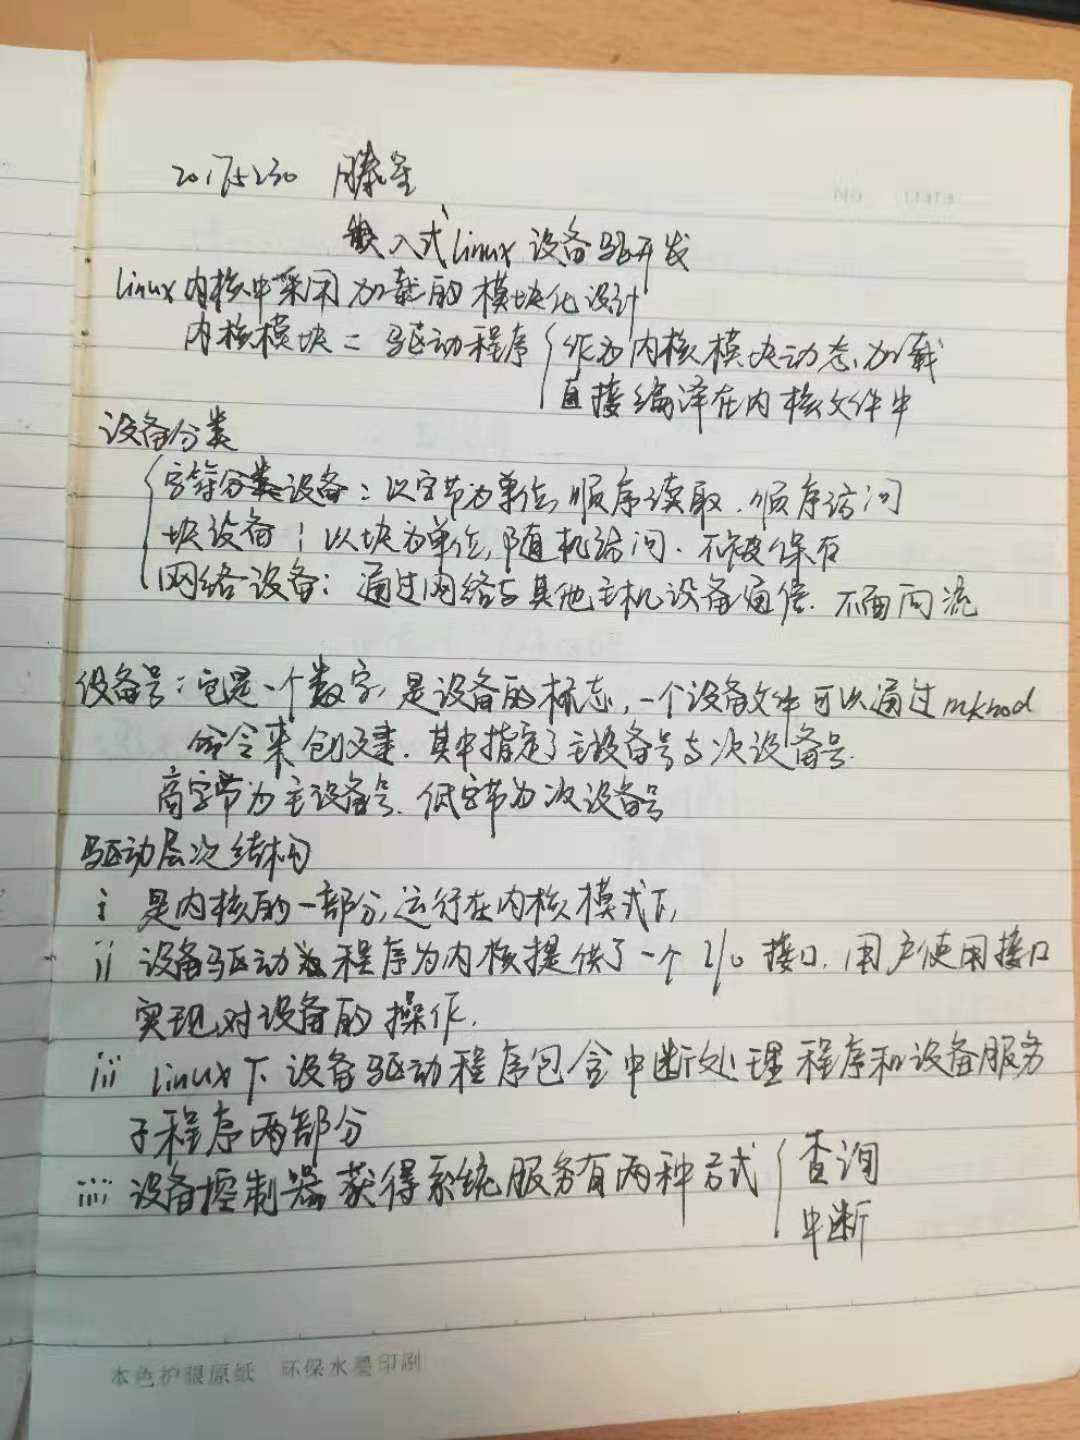 20175230 滕星
嵌入式linux设备驱开发
linux内核中采用加载的模块化设计
内核模块 = 驱动程序 { 作为内核模块动态加载
直接编译在内核文件中
设备分类
字符分类设备：以字节为单位，顺序读取．顺序访问
块设备：以块为单位，随机访问．
网络设备：通过网络与其他主机设备通信．不面向流
设备号：它是一个数字，是设备的标志，一个设备文件可以通过mknod
命令来创建．其中指定了主设备号与次设备号．
高字节为主设备号．低字节为次设备号
驱动层次结构
i 是内核的一部分，运行在内核模式下，
ii 设备驱动程序为内核提供了一个I/O接口．用户使用接口
实现对设备的操作．
iii linux下设备驱动程序包含中断处理程序和设备服务
子程序两部分
iiii 设备控制器获得系统服务有两种方式 { 查询
中断
本色护眼原纸 环保水墨印刷